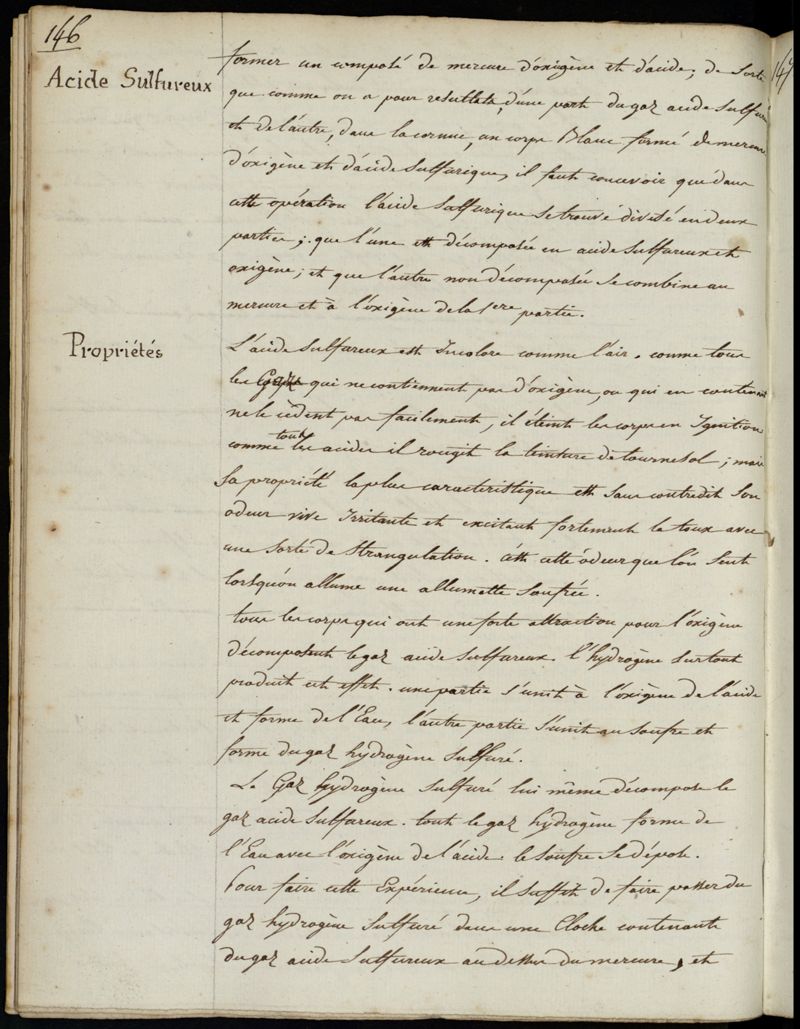 146
147
Acide Sulfureux
former un composé de mercure d'oxigène et d'acide; de sorte
que comme on a pour resultats, d'une part du gaz acide sulfure
et de l'autre, dans la cornue, un corps Blanc formé de mercure
d'oxigène et d'acide sulfurique, il faut concevoir que dans
cette opération l'acide sulfurique se trouve divisé en deux
parties; que l'une est décomposée en acide sulfureux et
oxigène; et que l'autre non décomposée se combine au
mercure et à l'oxigène de la 1ere partie.
Propriétés
L'acide sulfureux est Incolore comme l'air. comme tous
les Gaz qui ne contiennent pas d'oxigène, ou qui en contenant
ne le cèdent pas facilement, il éteint les corps en Ignition
comme tous les acides il rougit la teinture de tournesol; mais
Sa propriété la plus caracteristique est sans contredit son
odeur vive Irritante et excitant fortement la toux avec
une sorte de Strangulation. c'est cette odeur que l'on sent
lorsqu'on allume une allumette soufrée.
tous les corps qui ont une forte attraction pour l'oxigène
décomposent le gaz acide sulfureux. l'hydrogène surtout
produit cet effet. une partie s'unit à l'oxigène de l'acide
et forme de l'Eau, l'autre partie s'unit au soufre et
forme du gaz hydrogène sulfuré.
Le Gaz hydrogène sulfuré lui même décompose le
gaz acide sulfureux. tout le gaz hydrogène forme de
l'Eau avec l'oxigène de l'acide. le soufre se dépose.
Pour faire cette Expérience, il suffit de faire passer du
gaz hydrogène sulfuré dans une Cloche contenante
du gaz acide sulfureux au dessus du mercure, et